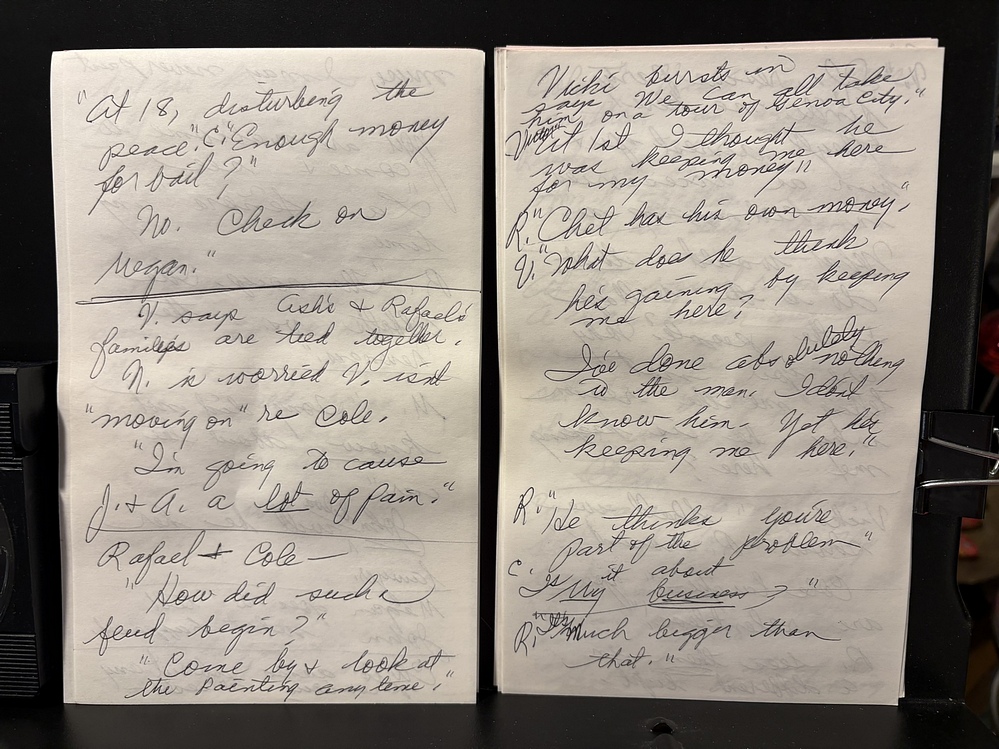 "At 18, disturbing the
peace." C. "Enough money
for bail?"
No. Check on
Megan."
V. says Ash's & Rafael's
families are tied together.
N. is worried V. isn't
"moving on" re Cole.
"I'm going to cause
J. & A. a lot of pain."
Rafael & Cole—
"How did such a
feud begin?"
"Come by & look at
the painting anytime."
Vicki bursts in
says We can all take
him on a tour of Genoa City."
Victor "At 1st I thought he
was keeping me here
for my money"
R. "Chet has his own money."
V. "What does he think
he's gaining by keeping
me here?
I've done absolutely
nothing
to the man. I don't
know him. Yet he's
keeping me here."
R. "He thinks you're
part of the problem"
C. Is it about
my business?"
R. "It's much bigger than
that."